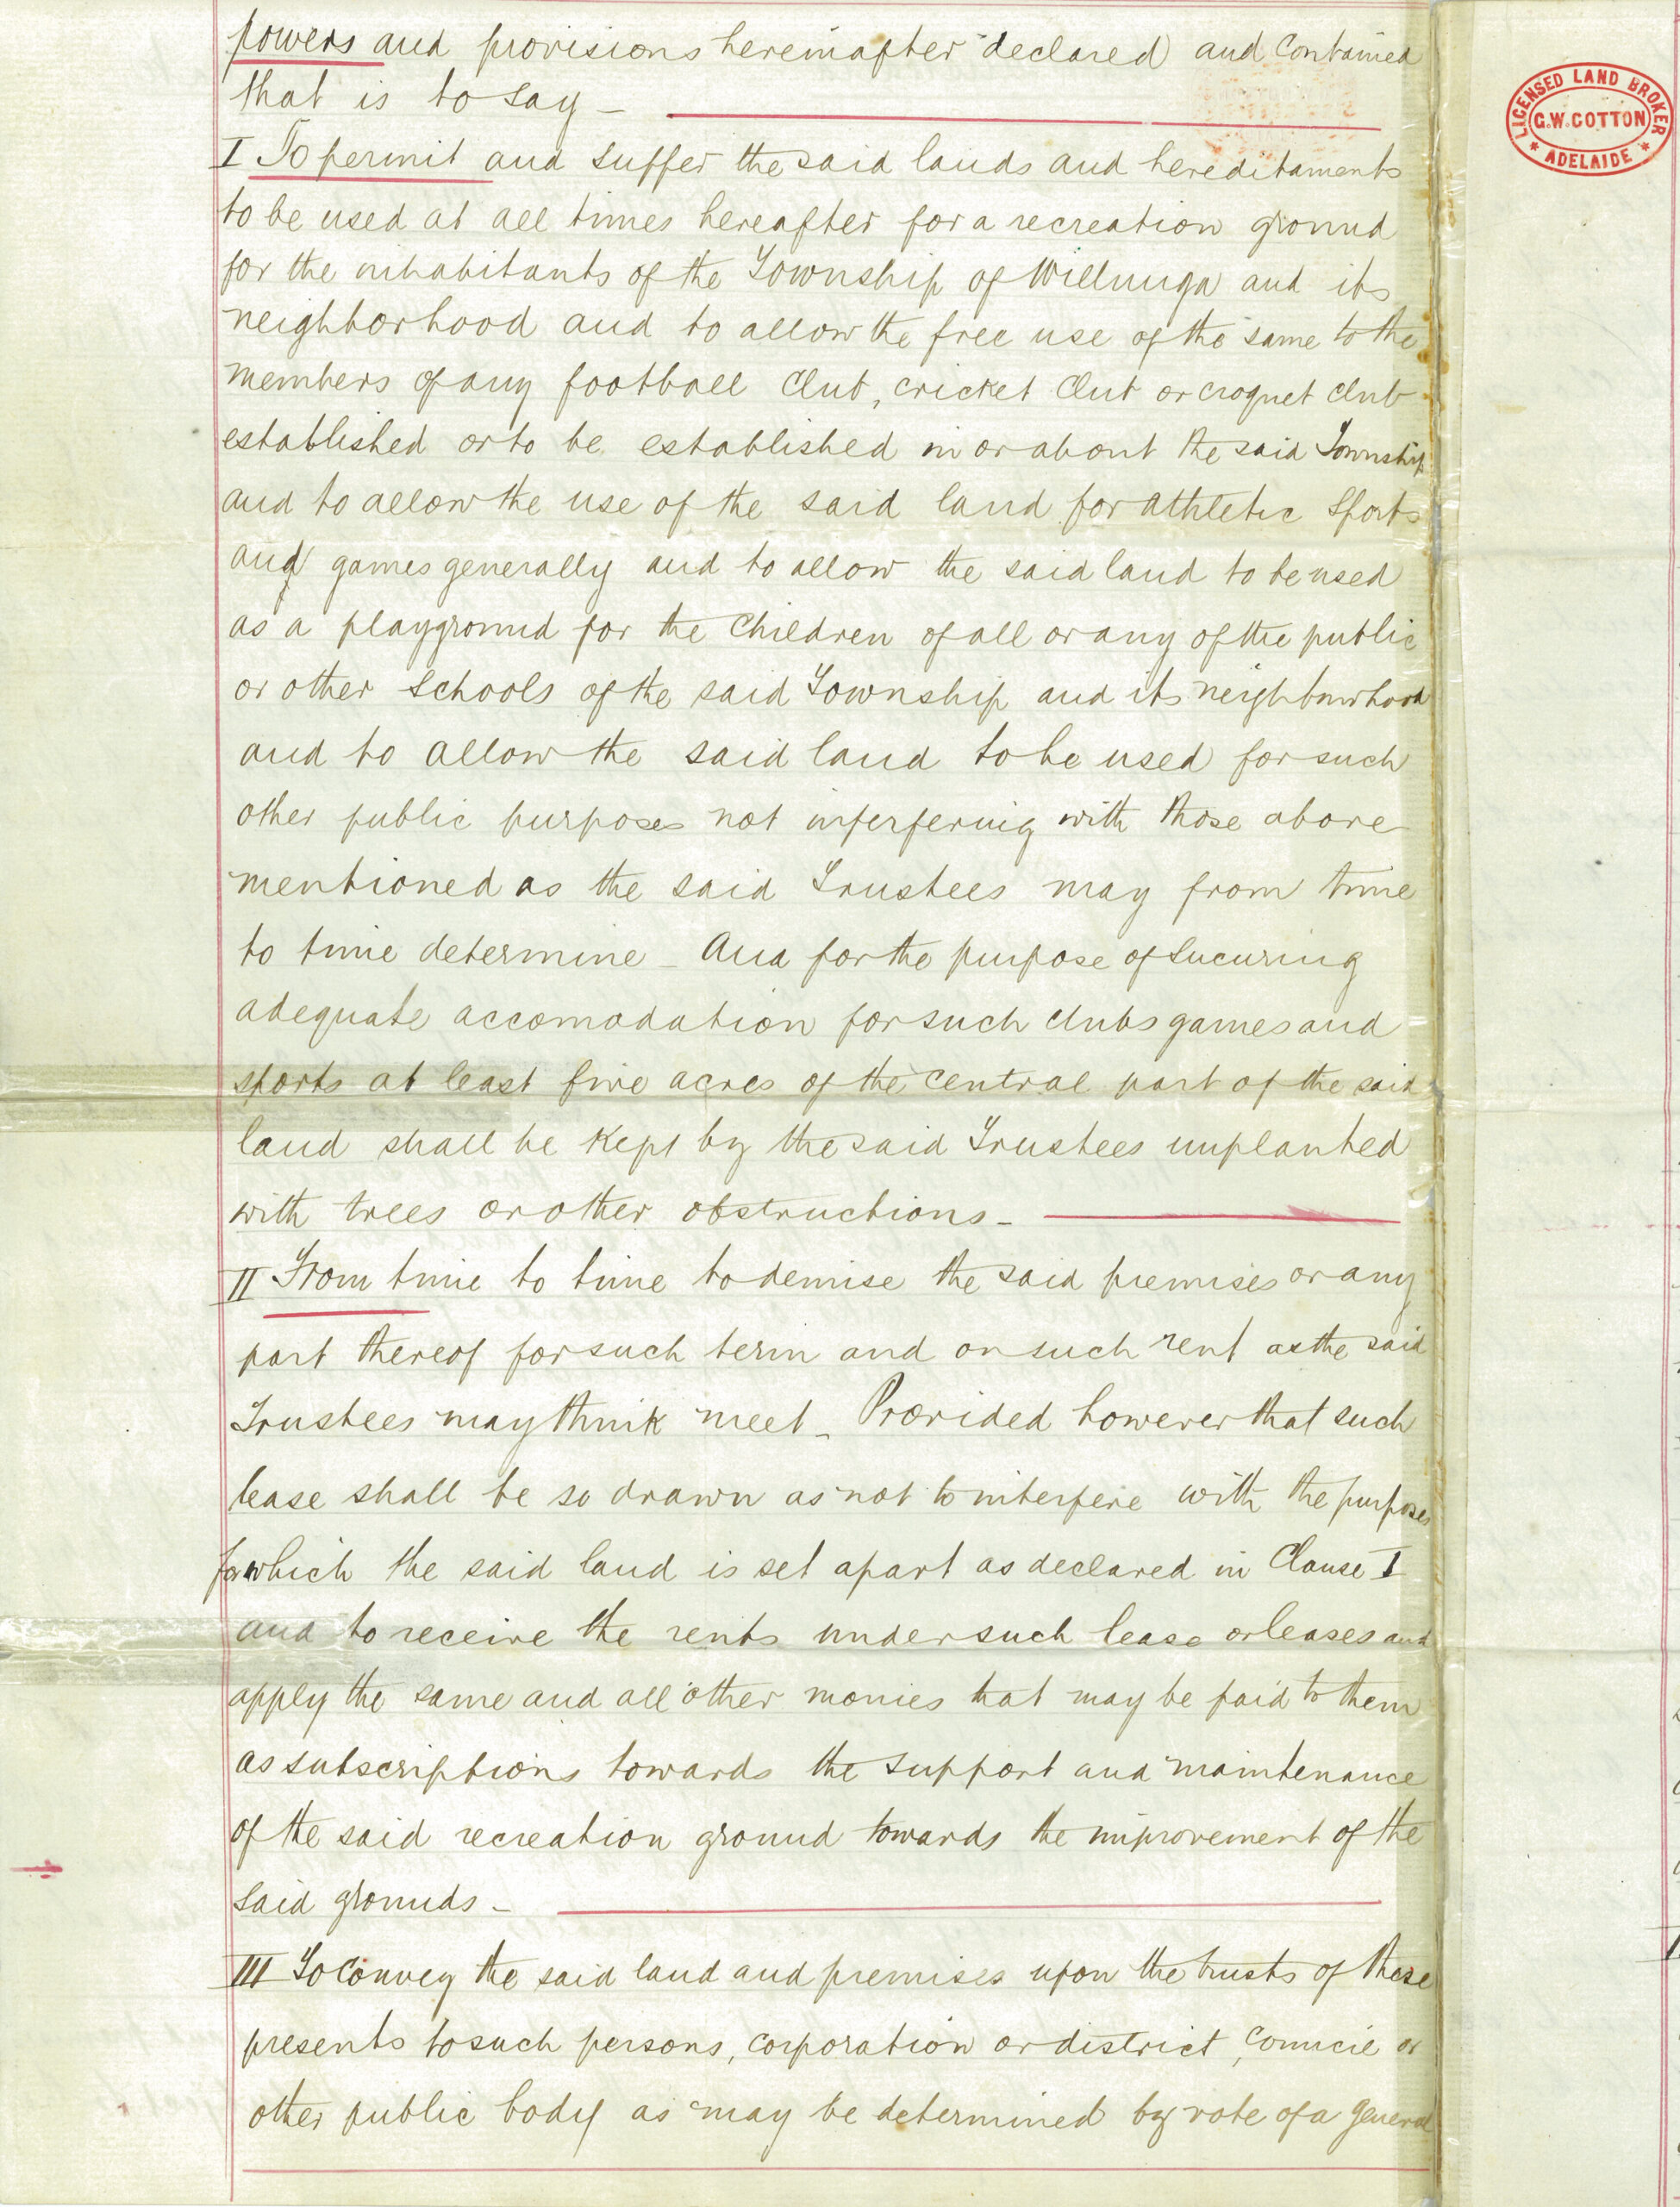 powers and provisions hereinafter declared and Contained
that is to say —
I To permit and suffer the said lands and hereditaments
to be used at all times hereafter for a recreation ground
for the inhabitants of the Township of Willunga and its
neighborhood and to allow the free use of the same to the
members of any football Club, cricket Club or croquet club
established or to be established in or about the said Township
and to allow the use of the said land for athletic Sports
and games generally and to allow the said land to be used
as a playground for the Children of all or any of the public
or other Schools of the said Township and its neighbourhood
and to allow the said land to be used for such
other public purposes not interfering with those above
mentioned as the said Trustees may from time
to time determine — And for the purpose of sucuring
adequate accomodation for such clubs games and
sports at least five acres of the central part of the said
land shall be kept by the said Trustees unplanted
with trees or other obstructions —
II From time to time to demise the said premises or any
part thereof for such term and on such rent as the said
Trustees may think meet — Provided however that such
lease shall be so drawn as not to interfere with the purposes
for which the said land is set apart as declared in Clause I
and to receive the rents under such lease or leases and
apply the same and all other monies that may be paid to them
as subscriptions towards the support and maintenance
of the said recreation ground towards the improvement of the
said grounds —
III To Convey the said land and premises upon the trusts of these
presents to such persons, corporation or district, Council or
other public body as may be determined by vote of a general
LICENSED LAND BROKER
G.W. COTTON
* ADELAIDE *